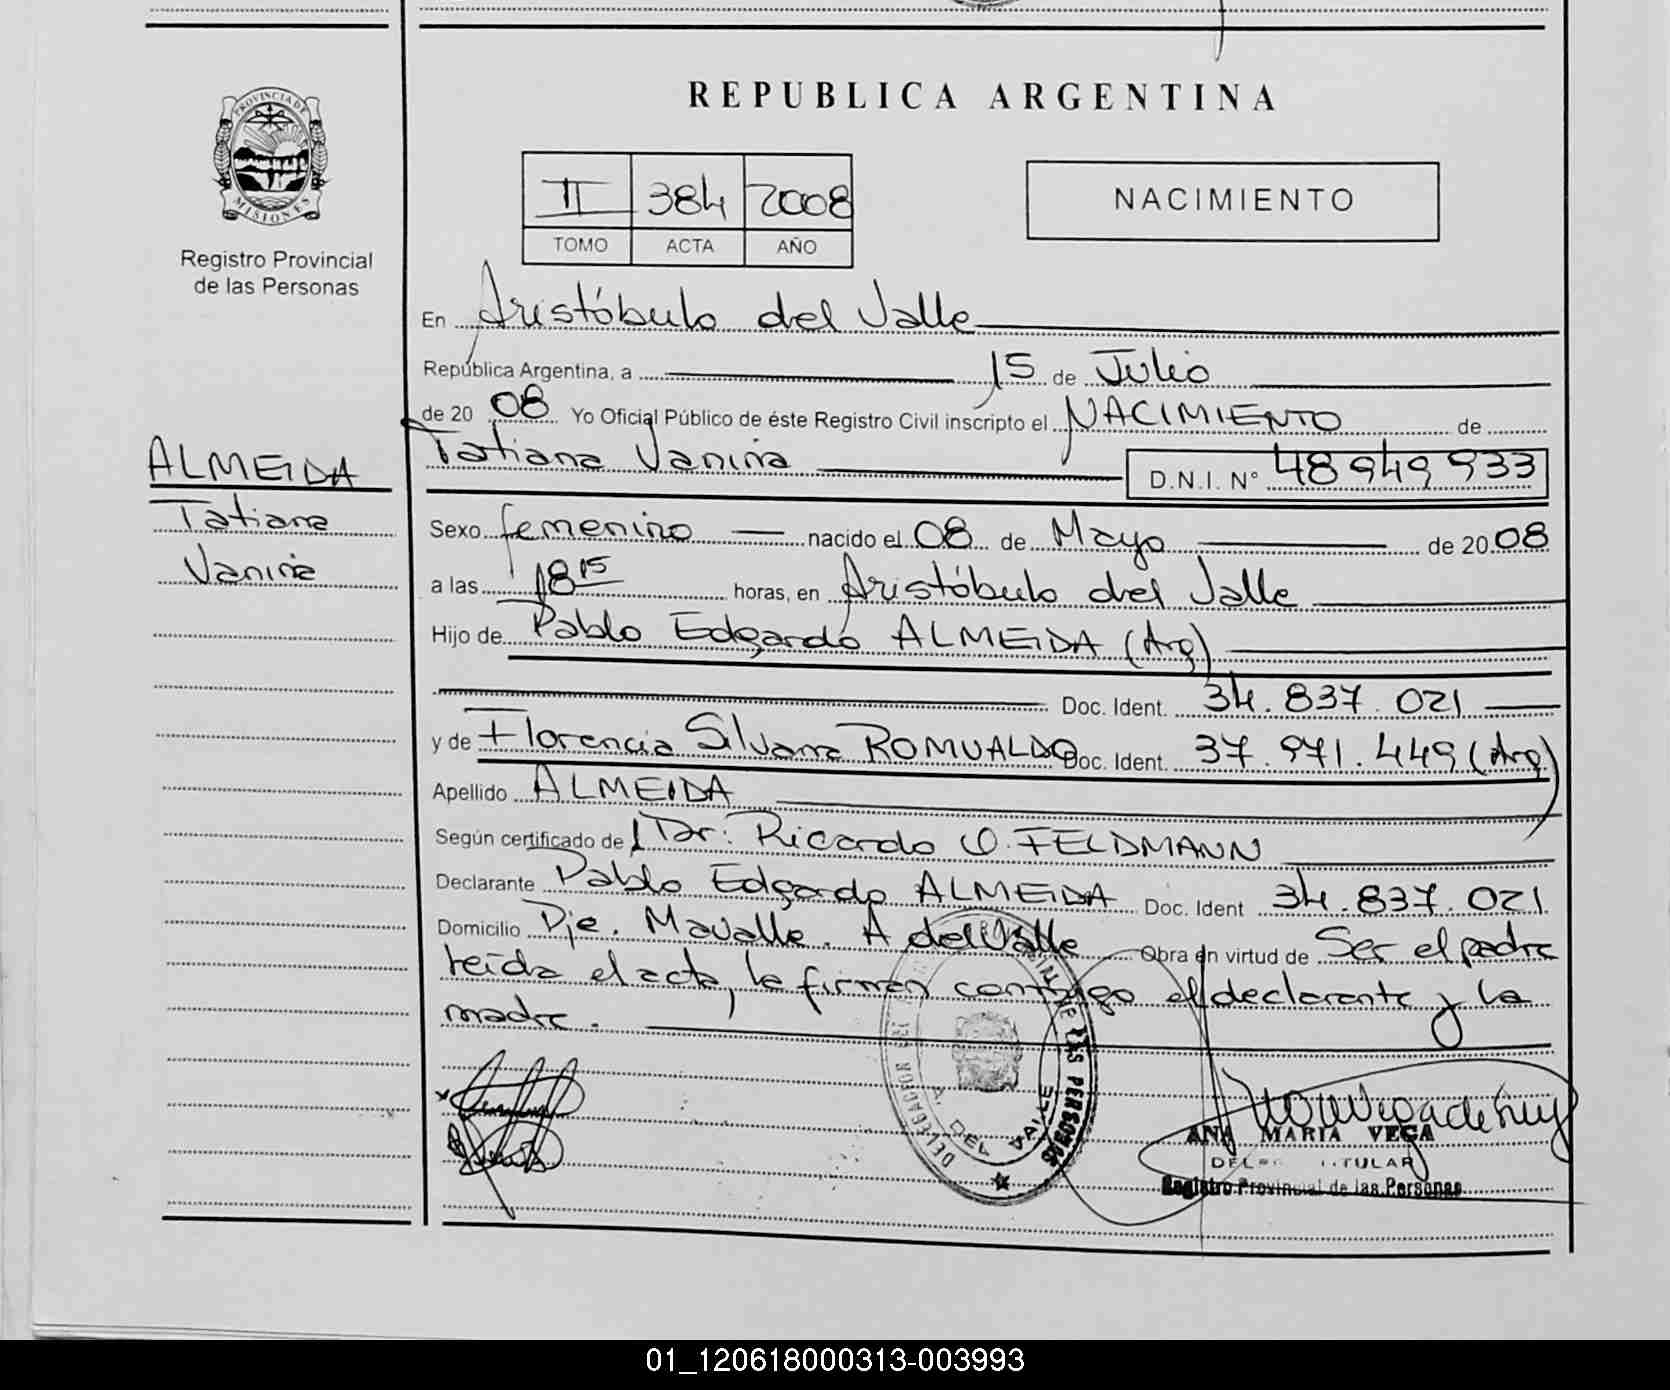 REPUBLICA ARGENTINA
PROVINCIA DE
MISIONES
Registro Provincial
de las Personas
II 384 2008
TOMO ACTA AÑO
NACIMIENTO
En Aristóbulo del Valle
República Argentina, a 15 de Julio
de 20 08 Yo Oficial Público de éste Registro Civil inscripto el NACIMIENTO de
Tatiana Vanina D.N.I. N° 48949933
ALMEIDA
Tatiana
Vanina
Sexo femenino nacido el 08 de Mayo de 20 08
a las 18 15 horas, en Aristóbulo del Valle
Hijo de Pablo Edgardo ALMEIDA (Arg)
Doc. Ident. 34.837.021
y de Florencia Silvana ROMUALDO Doc. Ident. 37.971.449 (Arg)
Apellido ALMEIDA
Según certificado de Dr: Ricardo O. FELDMANN
Declarante Pablo Edgardo ALMEIDA Doc. Ident 34.837.021
Domicilio Pje. Mavalle. A del Valle Obra en virtud de Ser el padre
leída el acta, la firman conmigo el declarante y la
madre.
DELEGACION DE LAS PERSONAS
A. DEL VALLE
ANA MARIA VEGA
TITULAR
Registro Provincial de las Personas
01_120618000313-003993